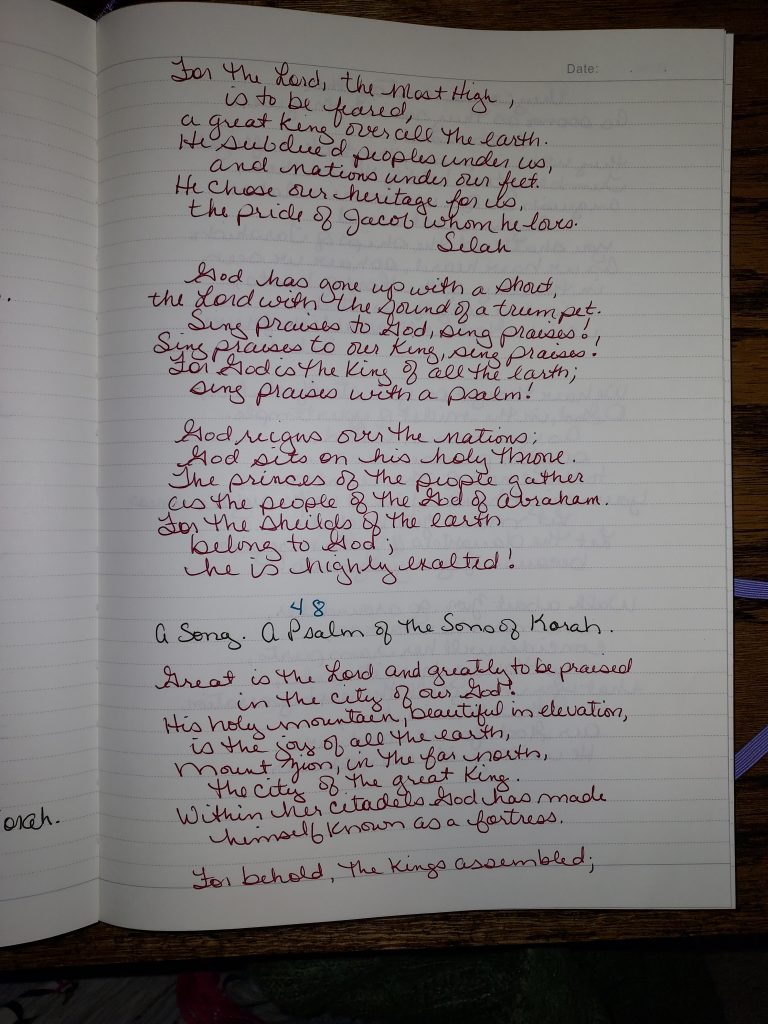 .
Date: . .
For the Lord, the Most High,
is to be feared,
a great King over all the earth.
He subdued peoples under us,
and nations under our feet.
He chose our heritage for us,
the pride of Jacob whom he loves.
Selah
God has gone up with a shout,
the Lord with the sound of a trumpet.
Sing praises to God, sing praises!,
Sing praises to our King, sing praises!
For God is the King of all the earth;
sing praises with a psalm!
God reigns over the nations;
God sits on his holy throne.
The princes of the people gather
as the people of the God of Abraham.
For the sheilds of the earth
belong to God;
he is highly exalted!
48
A Song. A Psalm of the Sons of Korah.
Great is the Lord and greatly to be praised
in the city of our God!
His holy mountain, beautiful in elevation,
is the joy of all the earth,
Mount Zion, in the far north,
the city of the great King.
Within her citadels God has made
himself known as a fortress.
For behold, the Kings assembled;
orah.